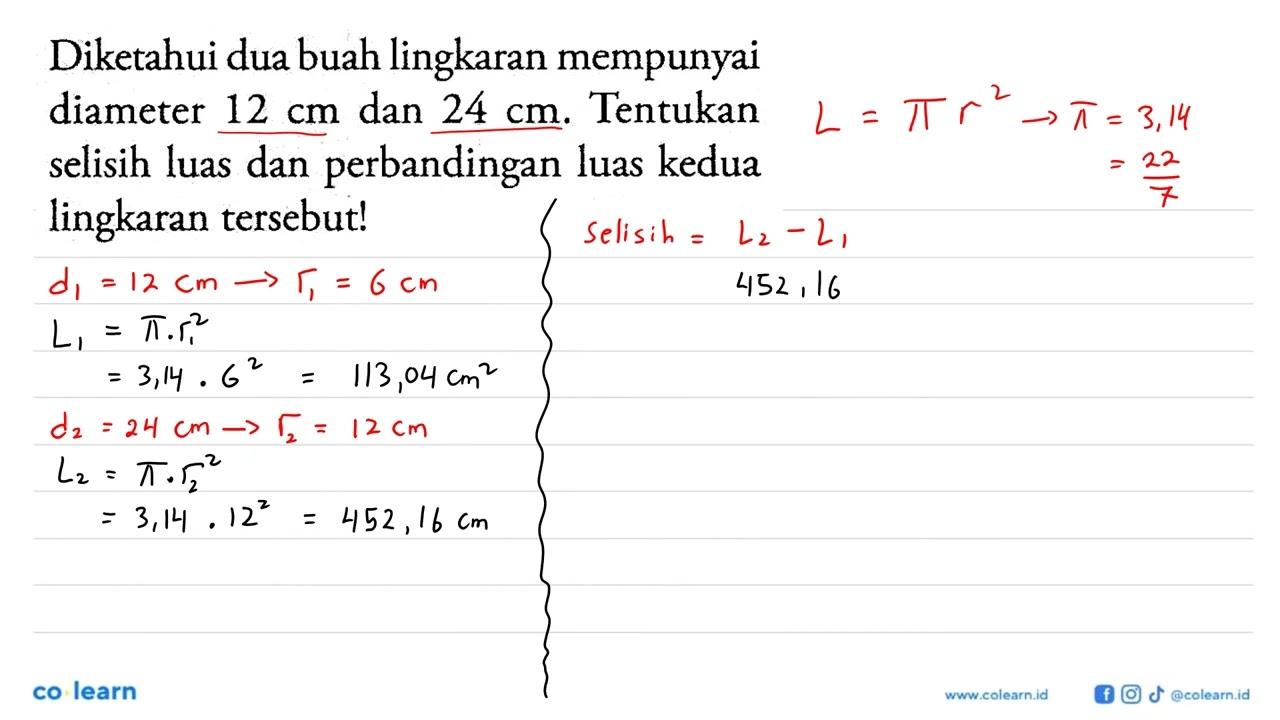 Diketahui dua buah lingkaran mempunyai
diameter 12 cm dan 24 cm. Tentukan
selisih luas dan perbandingan luas kedua
lingkaran tersebut!
L = π r² → π = 3,14
= 22/7
d₁ = 12 cm → r₁ = 6 cm
L₁ = π . r₁²
= 3,14 . 6² = 113,04 cm²
d₂ = 24 cm → r₂ = 12 cm
L₂ = π . r₂²
= 3,14 . 12² = 452,16 cm
selisih = L₂ - L₁
452,16
co learn
www.colearn.id @colearn.id